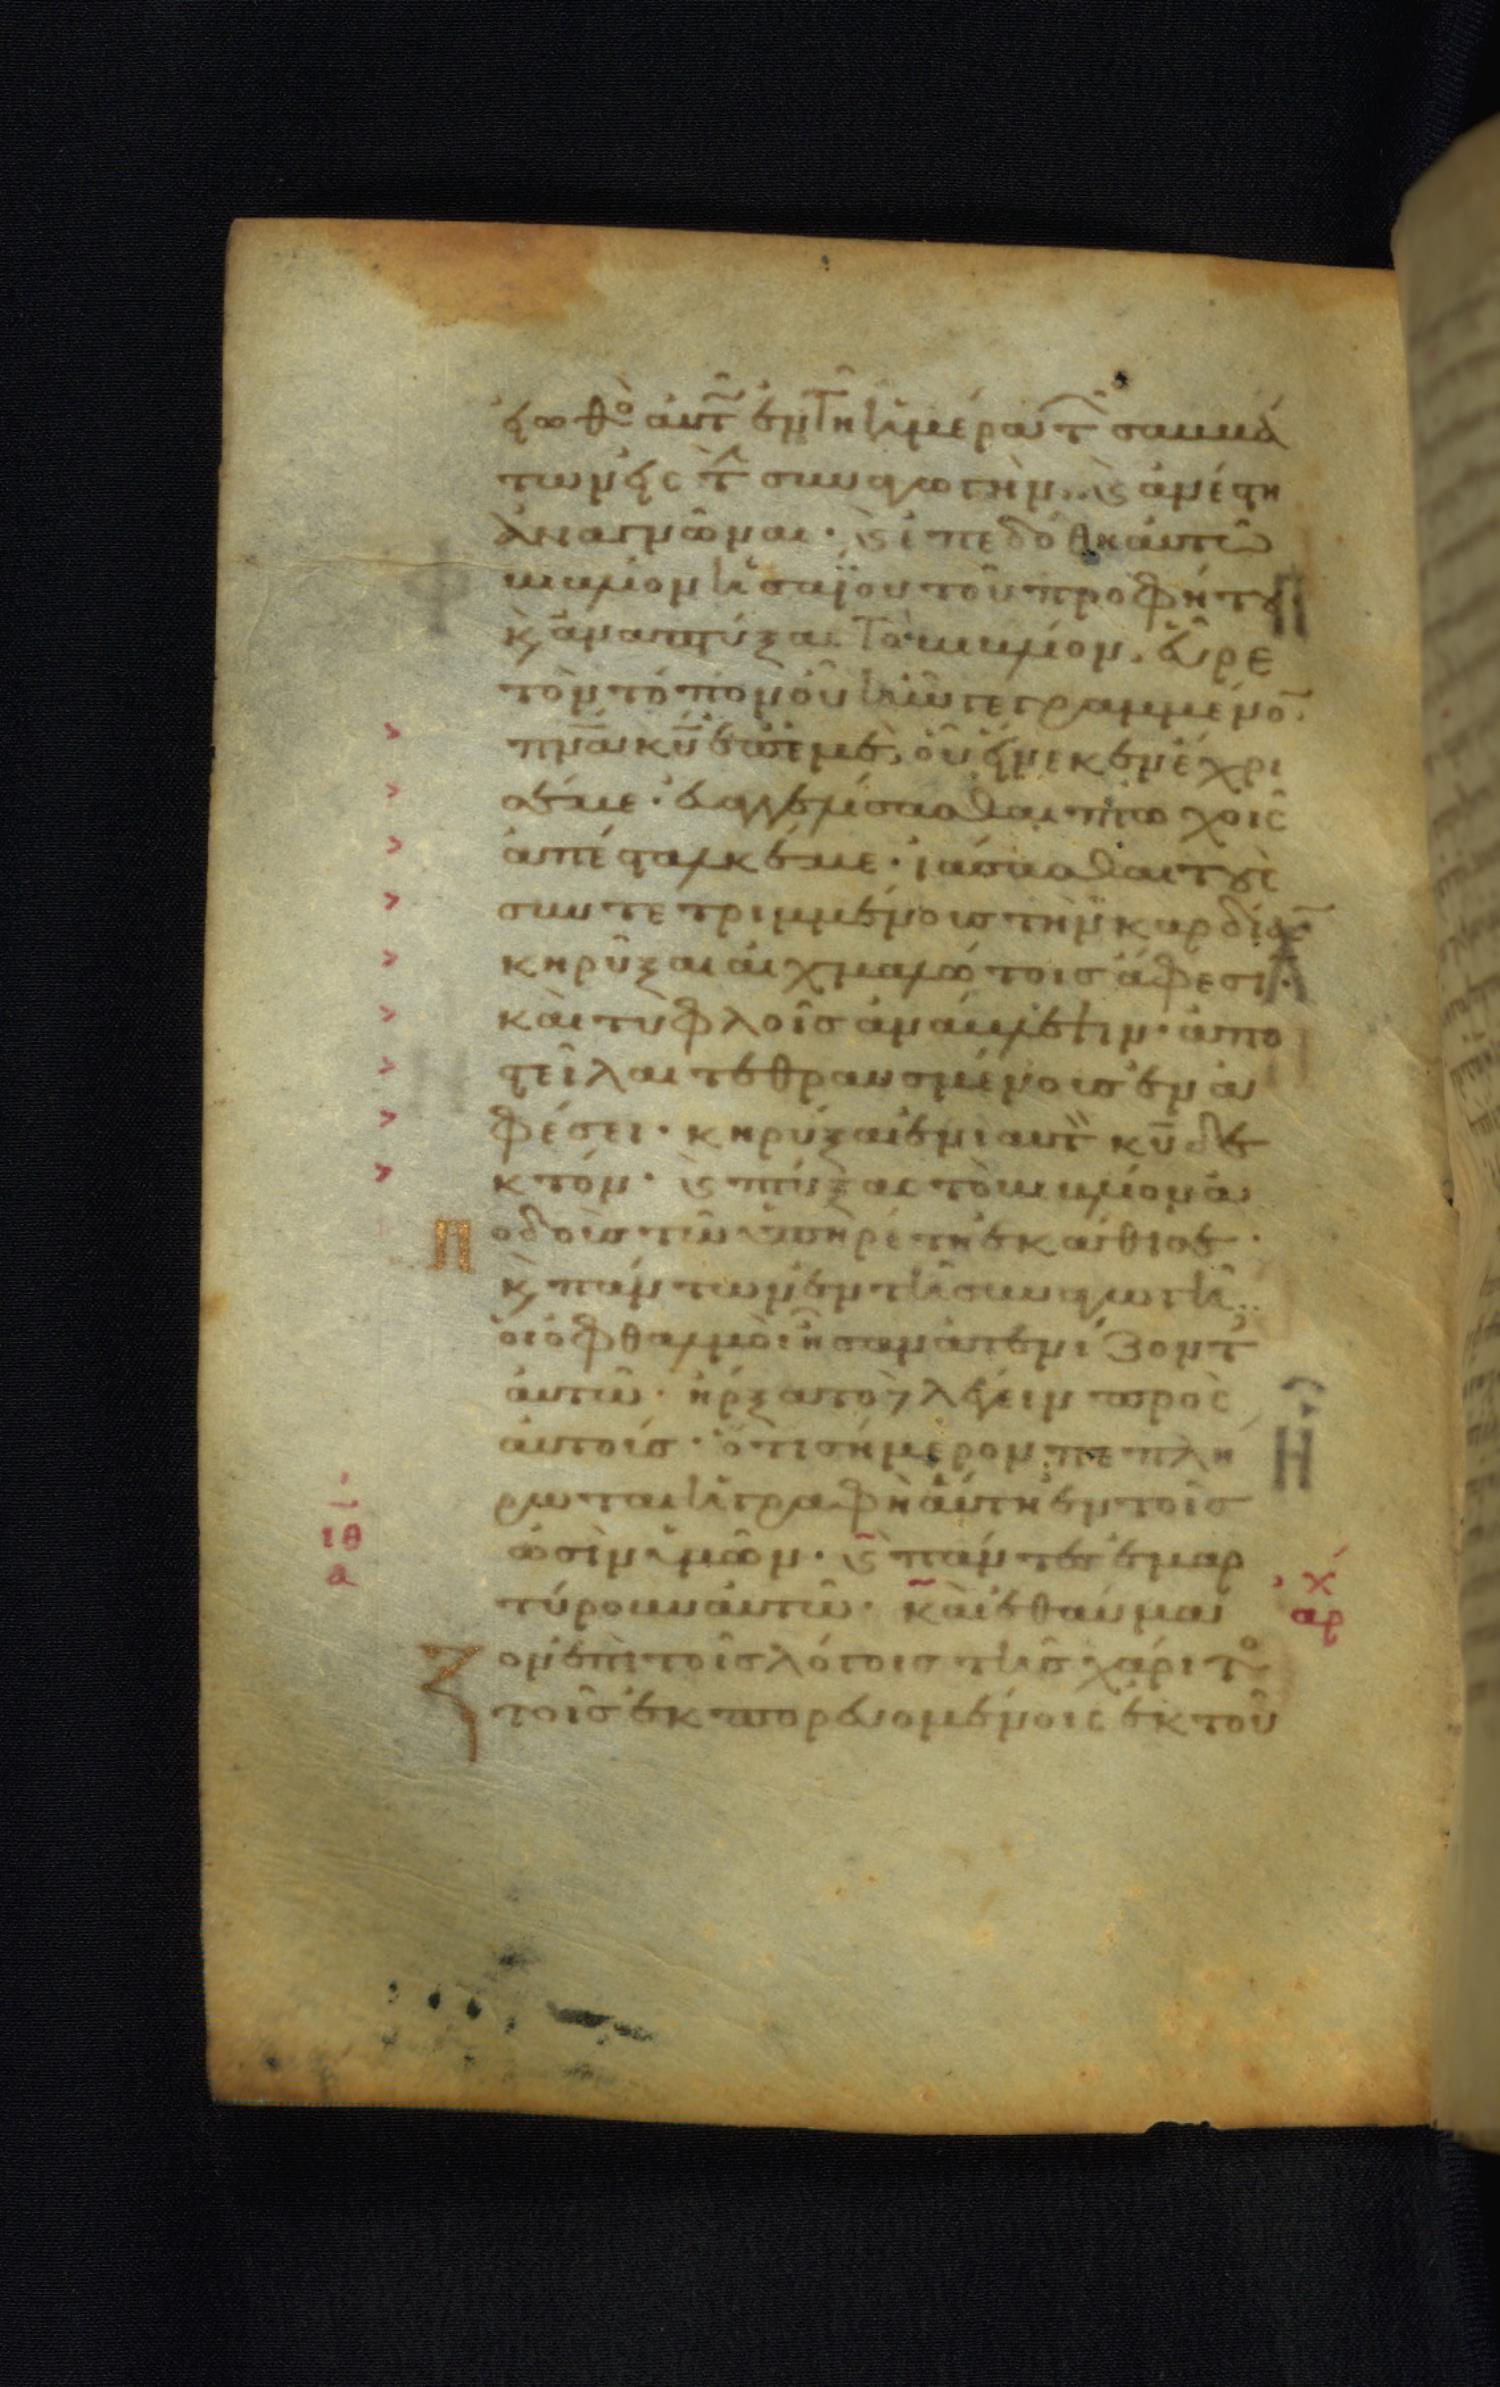 εἰωθὸς αὐτῶ ἐν τῆ ἡμέρα τῶν σαββά
των εἰς τὴν συναγωγήν. καὶ ἀνέστη
ἀναγνῶναι· καὶ ἐπεδόθη αὐτῶ
βιβλίον ἡσαΐου τοῦ προφήτου
καὶ ἀναπτύξας τὸ βιβλίον. εὗρε
τὸν τόπον οὗ ἦν γεγραμμένον·
πνα κυ ἐπ ἐμέ, οὗ εἵνεκεν ἔχρι
σέ με· εὐαγγελίσασθαι πτωχοῖς
ἀπέσταλκέ με· ἰάσασθαι τοὺς
συντετριμμένους τὴν καρδίαν
κηρῦξαι αἰχμαλώτοις ἄφεσιν·
καὶ τυφλοῖς ἀνάβλεψιν· ἀπο
στεῖλαι τεθραυσμένους ἐν ἀ
φέσει· κηρύξαι ἐνιαυτὸν κυ δε
κτόν· καὶ πτύξας τὸ βιβλίον ἀ
ποδοὺς τῶ ὑπηρέτη ἐκάθισε·
καὶ πάντων ἐν τῆ συναγωγῆ
οἱ ὀφθαλμοὶ ἦσαν ἀτενίζοντες
αὐτῶ· ἤρξατο δὲ λέγειν πρὸς
αὐτούς· ὅτι σήμερον πεπλή
ρωται ἡ γραφὴ αὕτη ἐν τοῖς
ὠσὶν ὑμῶν· καὶ πάντες ἐμαρ
τύρουν αὐτῶ· καὶ ἐθαύμα
ζον ἐπὶ τοῖς λόγοις τῆς χάριτος
τοῖς ἐκπορευομένοις ἐκ τοῦ
ιθ
α
χ
αρ